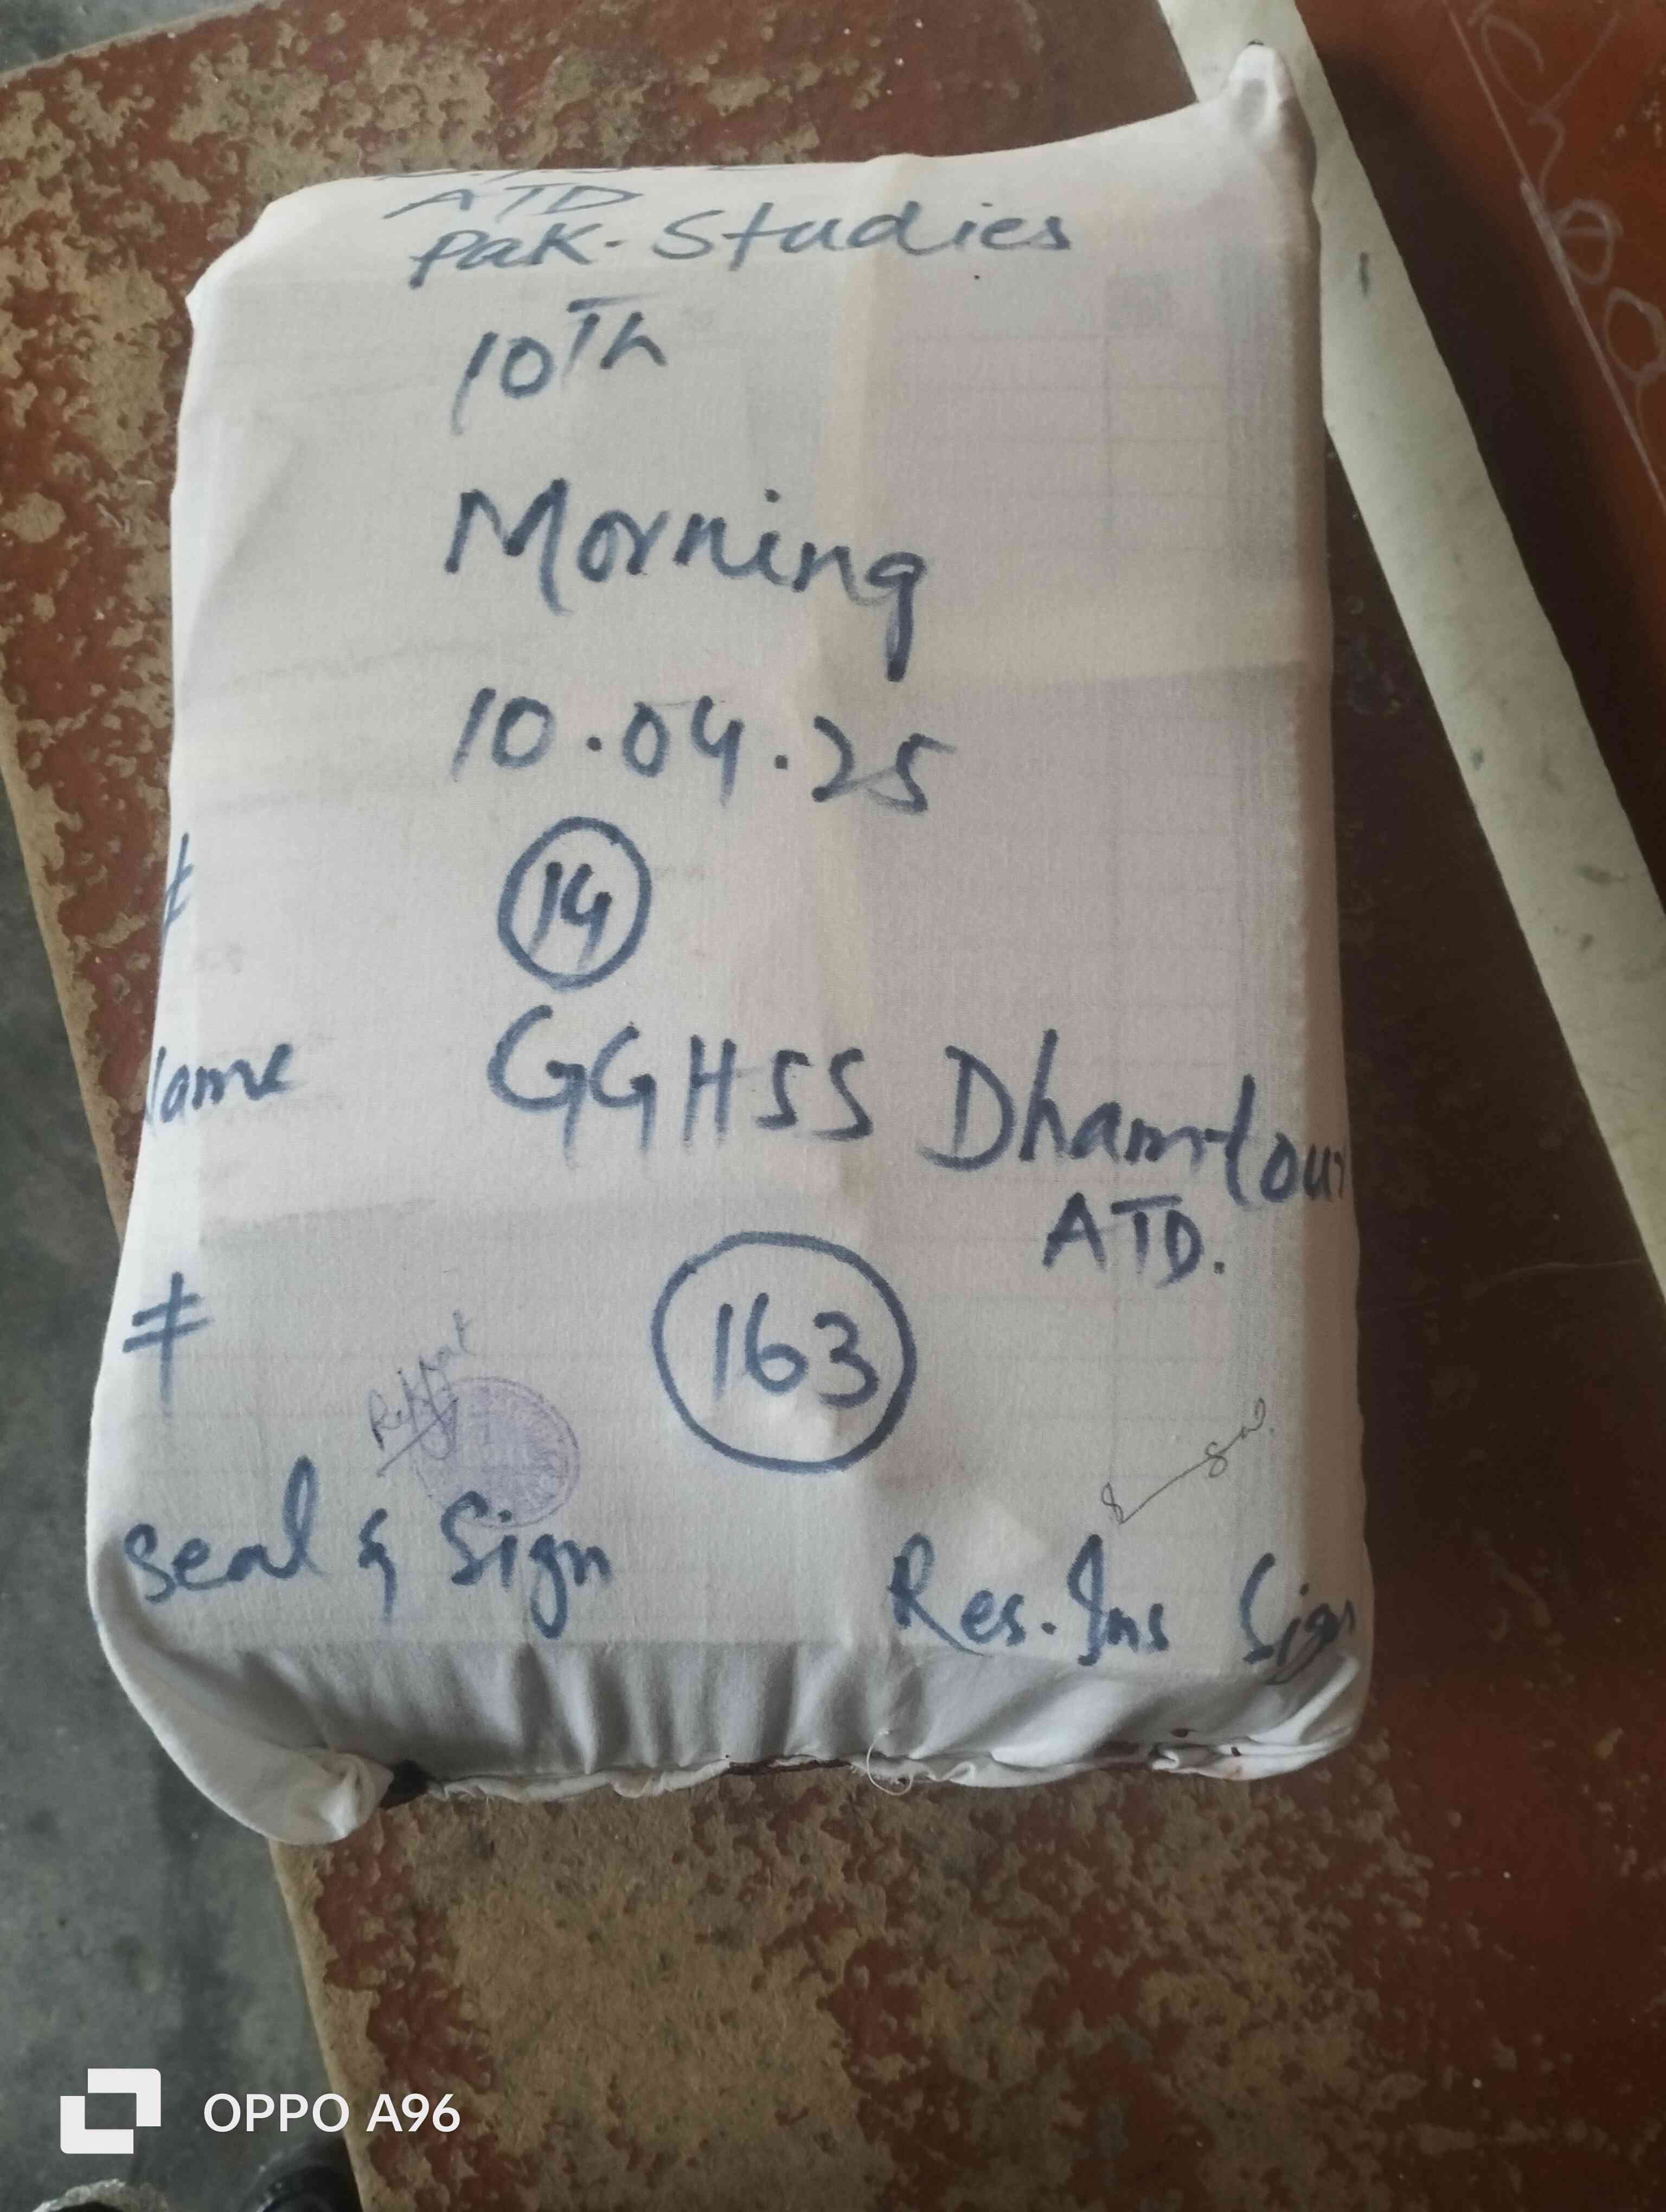 ATD
Pak. Studies
10Th
Morning
10.04.25
#
14
ame GGHSS Dhamtour
ATD.
# 163
Seal & Sign
Res. Ins Sign
OPPO A96